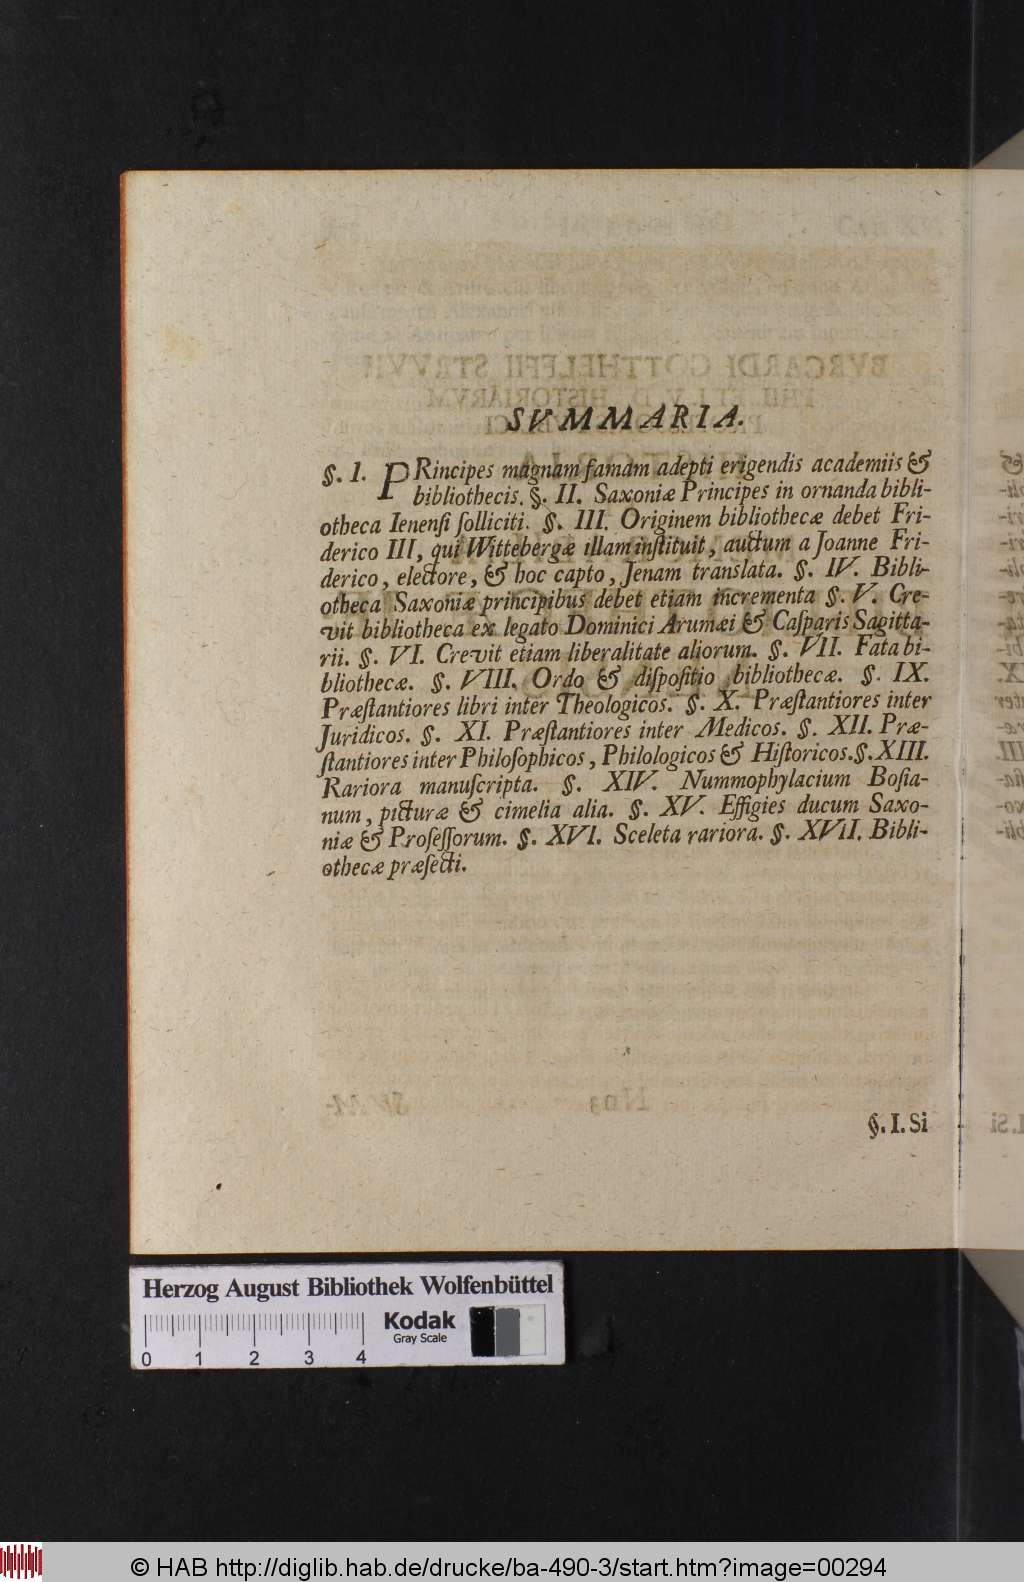 SVMMARIA.
§. I. PRincipes magnam famam adepti erigendis academiis &
bibliothecis. §. II. Saxoniæ Principes in ornanda bibli-
otheca Ienenſi ſolliciti. §. III. Originem bibliothecæ debet Fri-
derico III, qui Wittebergæ illam inſtituit, auctum a Joanne Fri-
derico, electore, & hoc capto, Jenam translata. §. IV. Bibli-
otheca Saxoniæ principibus debet etiam incrementa §. V. Cre-
vit bibliotheca ex legato Dominici Arumæi & Caſparis Sagitta-
rii. §. VI. Crevit etiam liberalitate aliorum. §. VII. Fata bi-
bliothecæ. §. VIII. Ordo & diſpoſitio bibliothecæ. §. IX.
Præſtantiores libri inter Theologicos. §. X. Præſtantiores inter
Juridicos. §. XI. Præſtantiores inter Medicos. §. XII. Præ-
ſtantiores inter Philoſophicos, Philologicos & Hiſtoricos. §. XIII.
Rariora manuſcripta. §. XIV. Nummophylacium Boſia-
num, picturæ & cimelia alia. §. XV. Effigies ducum Saxo-
niæ & Profeſſorum. §. XVI. Sceleta rariora. §. XVII. Bibli-
othecæ præfecti.
§. I. Si
Herzog August Bibliothek Wolfenbüttel
Kodak
Gray Scale
0 1 2 3 4
© HAB http://diglib.hab.de/drucke/ba-490-3/start.htm?image=00294